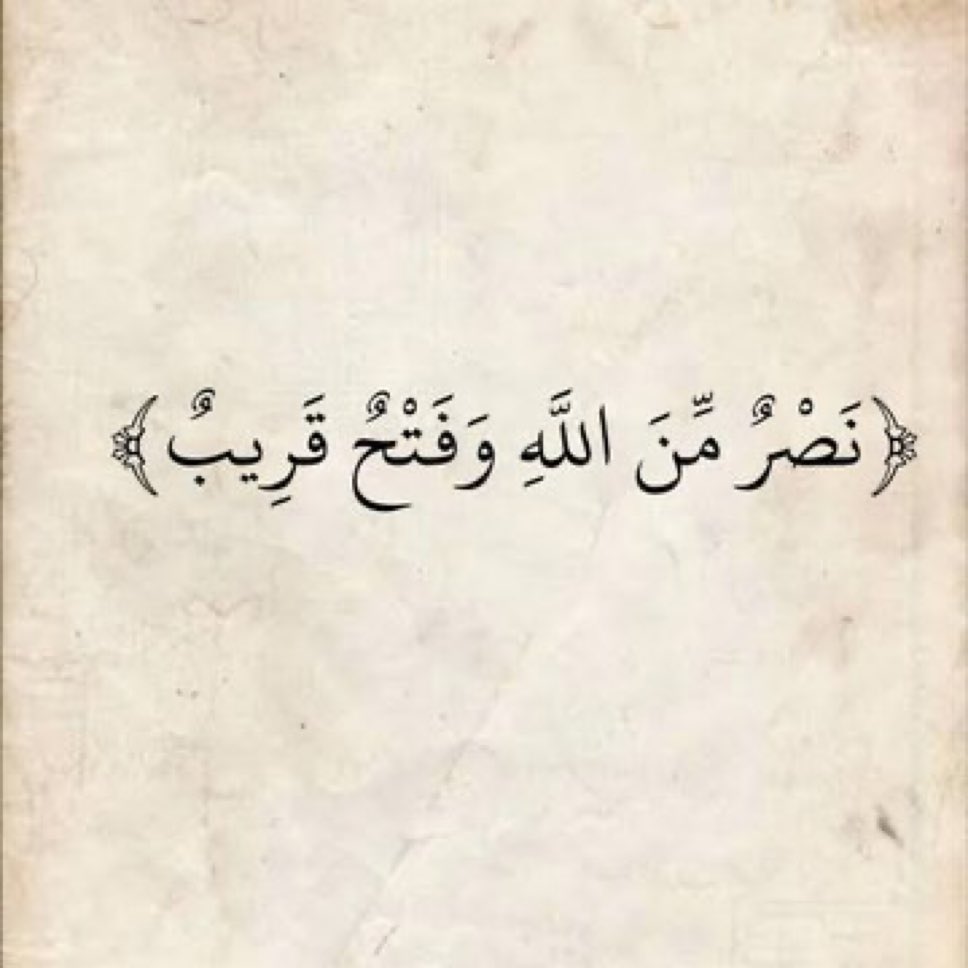 ﴿نَصْرٌ مِّنَ اللَّهِ وَفَتْحٌ قَرِيبٌ﴾